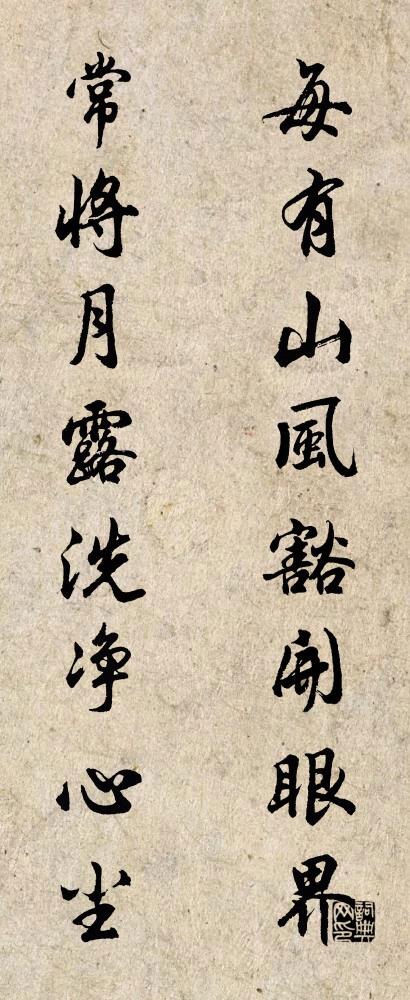 每有山風豁開眼界
常將月露洗净心尘
詞典網印